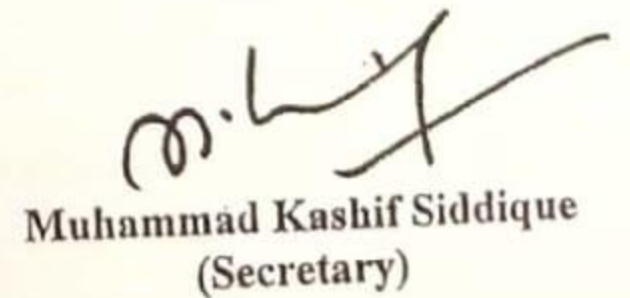 Muhammad Kashif Siddique
(Secretary)